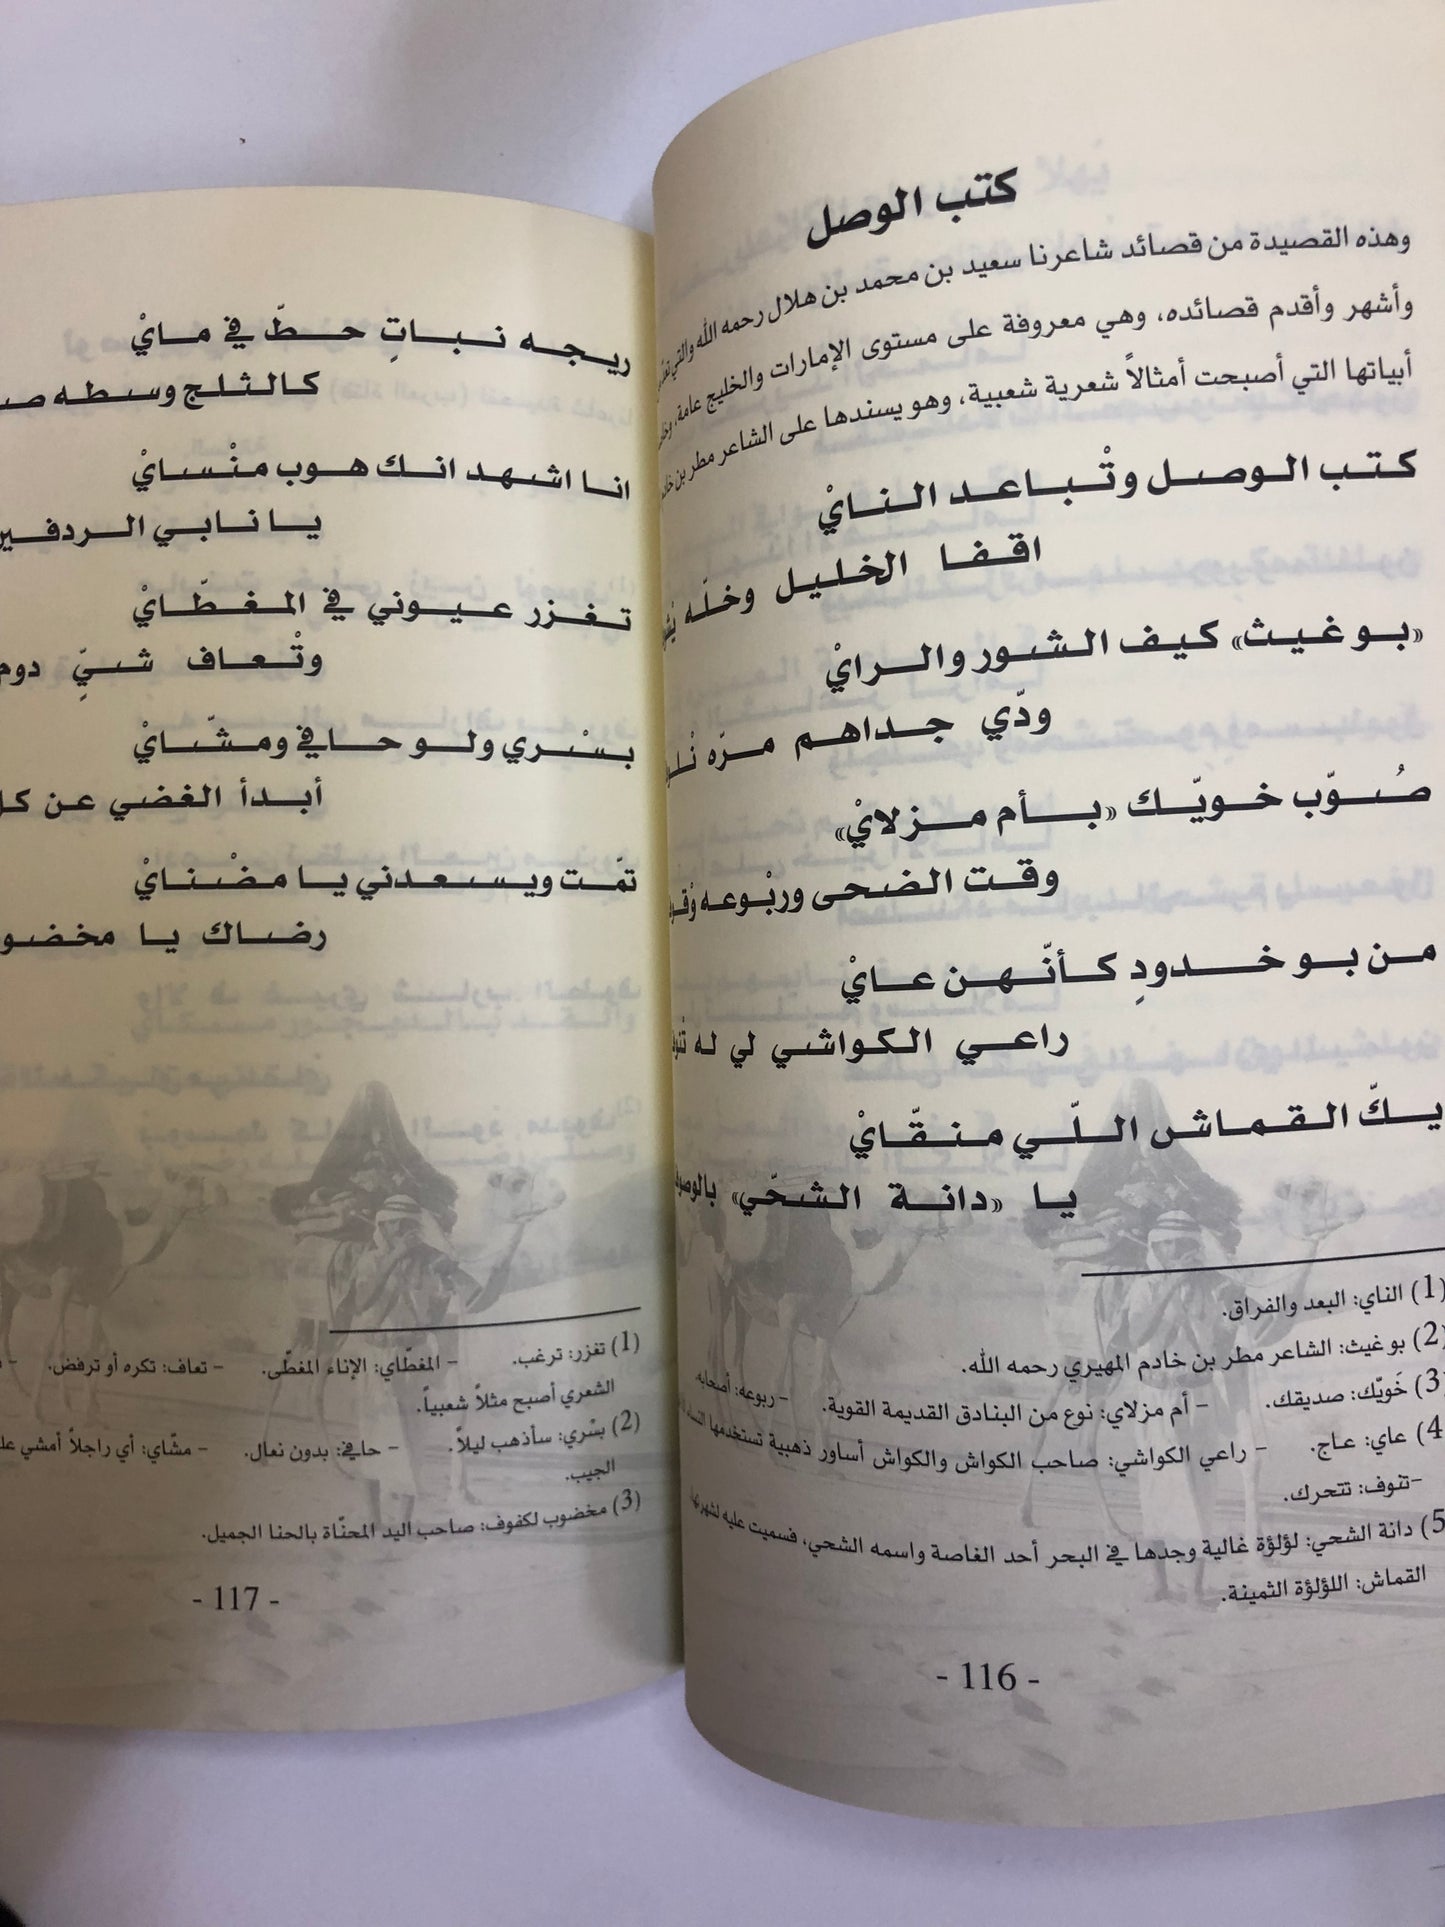 كتب الوصل
وهذه القصيدة من قصائد شاعرنا سعيد بن محمد بن هلال رحمه الله والتي
وأشهر وأقدم قصائده، وهي معروفة على مستوى الإمارات والخليج عامة،
أبياتها التي أصبحت أمثالاً شعرية شعبية، وهو يسندها على الشاعر مطر بن
كتب الوصل وتْباعد النايْ
اقفا الخليل وخلّه
«بو غيث» كيف الشور والرايْ
ودّي جداهم مرّه
صُوّب خويّك «بأم مزلايْ»
وقت الضحى وربْوعه
من بو خدودِ كأنّهن عايْ
راعي الكواشي لي له
يكّ القماش اللّي منقّايْ
يا «دانة الشحّي»
(1) الناي: البعد والفراق.
(2) بو غيث: الشاعر مطر بن خادم المهيري رحمه الله.
(3) خَويّك: صديقك. - أم مزلاي: نوع من البنادق القديمة القوية. - ربوعه: أصحابه.
(4) عاي: عاج. - راعي الكواشي: صاحب الكواش والكواش أساور ذهبية تستخدمها
-تنوف: تتحرك.
(5) دانة الشحي: لؤلؤة غالية وجدها في البحر أحد الغاصة واسمه الشحي، فسميت عليه
القماش: اللؤلؤة الثمينة.
- 116 -
ريجه نباتِ حطّ في مايْ
كالثلج وسطه
انا اشهد انك هوب منْسايْ
يا نابي الردفين
تغزر عيوني في المغطّايْ
وتْعاف شيّ دوم
بسْري ولو حافي ومشّايْ
أبدأ الغضي عن
تمّت ويسعدني يا مضْنايْ
رضاك يا
(1) تغزر: ترغب. - المغطّاي: الإناء المغطّى. - تعاف: تكره أو ترفض.
الشعري أصبح مثلاً شعبياً.
(2) بسْري: سأذهب ليلاً. - حافي: بدون نعال. - مشّاي: أي راجلاً أمشي
الجيب.
(3) مخضوب لكفوف: صاحب اليد المحنّاة بالحنا الجميل.
- 117 -